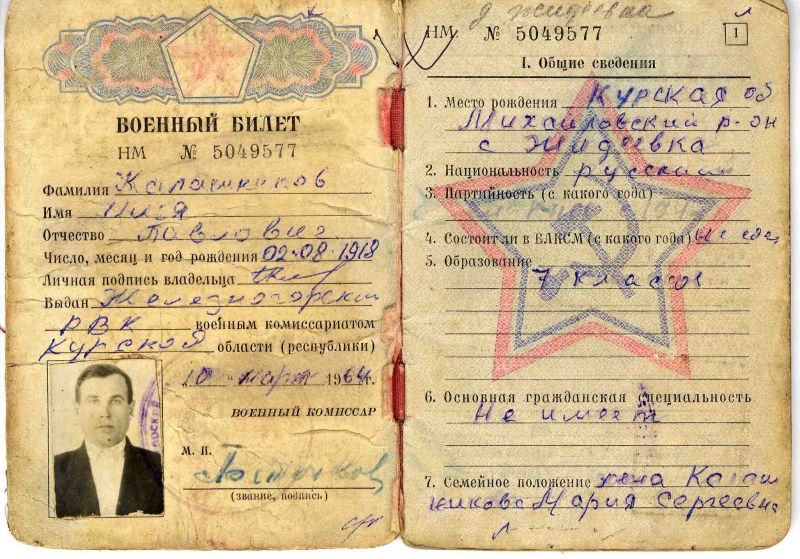 ВОЕННЫЙ БИЛЕТ
НМ № 5049577
Фамилия Калашников
Имя Илья
Отчество Павлович
Число, месяц и год рождения 02-08-1918
Личная подпись владельца
Выдан Железногорским
РВК военным комиссариатом
Курской области (республики)
10 март 1964 г.
ВОЕННЫЙ КОМИССАР
М. П.
(звание, подпись)
д Жидеевка
НМ № 5049577
1
I. Общие сведения
1. Место рождения Курская об
Михайловский р-он
с Жидеевка
2. Национальность русский
3. Партийность (с какого года)
4. Состоит ли в ВЛКСМ (с какого года) не сост
5. Образование
7 классов
6. Основная гражданская специальность
Не имеет
7. Семейное положение жена Калаш
никова Мария Сергеевна